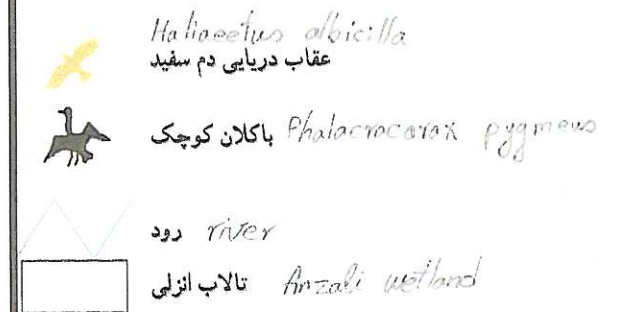 Haliaeetus albicilla
عقاب دریایی دم سفید
باکلان کوچک Phalacrocorax pygmeus
رود river
تالاب انزلی Anzali wetland